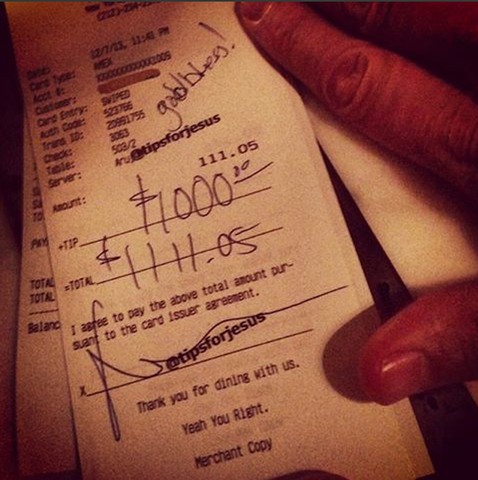 New Yo
(212)-254-2
Date: 12/7/13, 11:41 PM
Card Type: AMEX
Acct #: XXXXXXXXXXX1009
Customer:
Card Entry: SWIPED
Auth Code: 523766
Trans ID: 20991755
Check: 3063
Table: 503/2
Server: Aru
god bless!
@tipsforjesus
Amount: 111.05
+TIP $1000.00
=TOTAL $1111.05
PAY
TOTAL
TOTAL
Balanc
I agree to pay the above total amount pur-
suant to the card issuer agreement.
X
@tipsforjesus
Thank you for dining with us.
Yeah You Right.
Merchant Copy